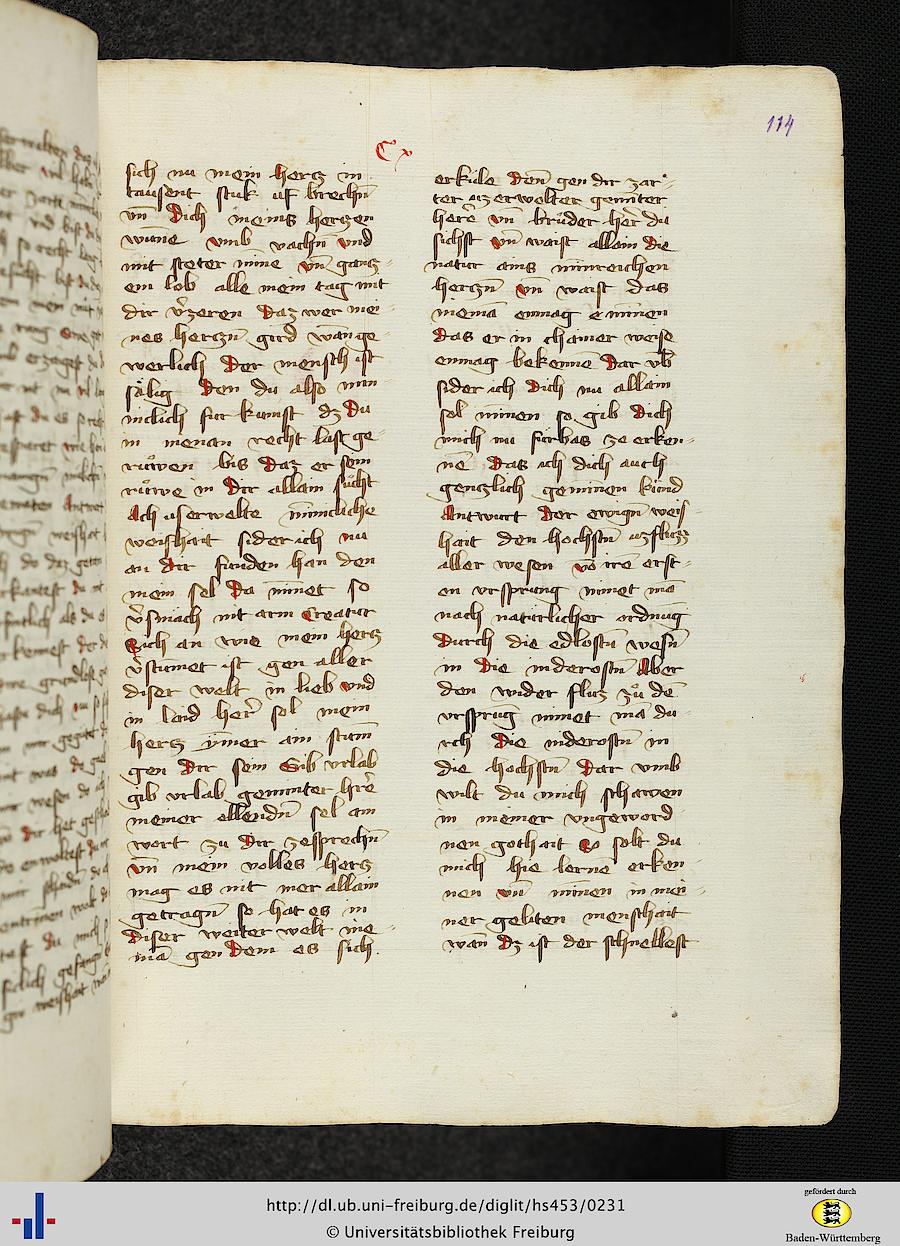 114
Cx
sich nu mein hercz in
tausent stuk uf brechn̄
vn̄ Dich meins herczen
wūne vmb vachn̄ vnd
mit steter mīne vn̄ gancz-
em lob alle mein tag mit
dir v̄zeren Daz wer mei-
nes herczn̄ gird wan ge-
werlich Der mensch ist
sälig Den du also min
niclich fürkumst dz Du
in recht last ge-
ruͦwen bis Daz er sein
ruͦwe in Dir allain sůcht
Ach userwelte mīncliche
weishait sider ich nu
an dir funden han den
mein sel Da mīnet so
v̄smach nit arm Creatur
Sich an wie mein hercz
v̄stumet ist gen aller
diser welt in lieb vnd
in laid her̄ sol mein
hercz ym̄er ain stum̄
gen Dir sein Gib vrlab
gib vrlab geminter hr̄e
meiner ellendn̄ sel ain
wort zu Dir zesprechn̄
vn̄ mein volles hercz
mag es nit mer allain
getragn̄ so hat es in
Diser weiter welt nie-
mā gen Dem es sich
erküle Den̄ gen dir zar-
ter uzerwelter gemīter
herē vn̄ brůder her̄ du
sichst vn̄ waist allain Die
natur ains minreichen
herczn̄ vn̄ waist das
niemā enmag gemīnen
Das er in chainer weise
enmag bekenne Dar vb
sider ich Dich nu allain
sol minnen so gib Dich
mich nu fürbas ze erken-
ne Das ich dich auch
genczlich geminen künd
Antwurt Der ewign̄ weis
hait den hochstn̄ uzflucz
aller wesen vō irē erst-
en vrsprung nimet mā
nach naturlicher ordnūg
Durch die edlostn̄ wesn̄
in Die niderostn̄ Aber
den wider flucz zů dē
vrsprūg nimet mā du-
rch Die niderostn̄ in
die hochstn̄ Dar vmb
wilt du mich schawen
in meiner vngeword-
nen gothait So solt du
mich hie lerne erken-
nen vn̄ mīnen in mei-
ner geliten menschait
wan̄ dz ist der schnellest
http://dl.ub.uni-freiburg.de/diglit/hs453/0231
© Universitätsbibliothek Freiburg
gefördert durch
Baden-Württemberg